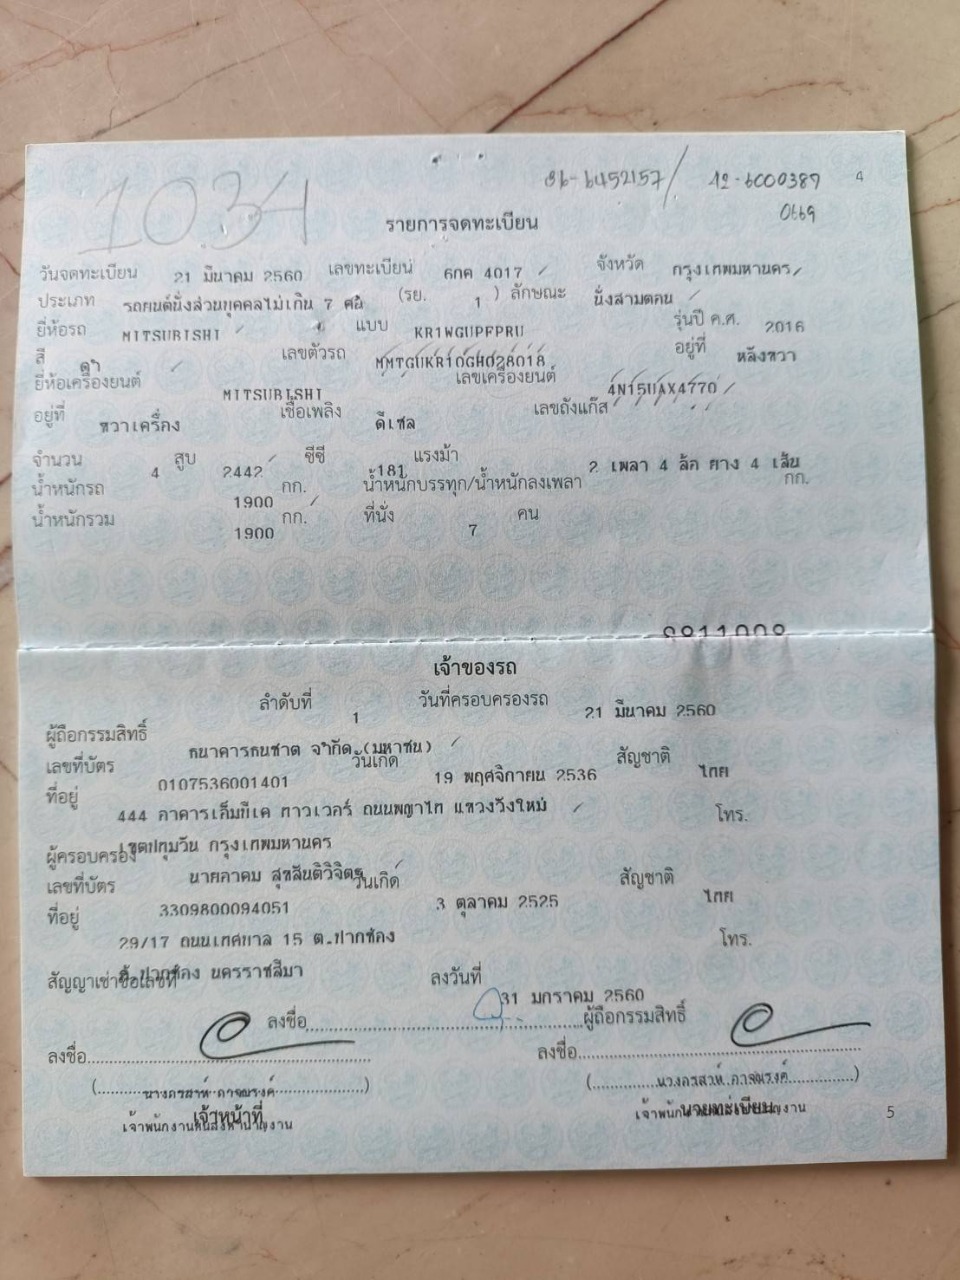 1034
06-6452157/ 12-6000389 4
0669
รายการจดทะเบียน
วันจดทะเบียน 21 มีนาคม 2560 เลขทะเบียน 6กค 4017 จังหวัด กรุงเทพมหานคร
ประเภท รถยนต์นั่งส่วนบุคคลไม่เกิน 7 คน (รย. 1 ) ลักษณะ นั่งสามตอน
ยี่ห้อรถ MITSUBISHI แบบ KR1WGUPFPRU รุ่นปี ค.ศ. 2016
สี ดำ เลขตัวรถ MMTGUKR10GH028018 อยู่ที่ หลังขวา
ยี่ห้อเครื่องยนต์ MITSUBISHI เลขเครื่องยนต์ 4N15UAX4770
อยู่ที่ ขวาเครื่อง เชื้อเพลิง ดีเซล เลขถังแก๊ส
จำนวน 4 สูบ 2442 ซีซี 181 แรงม้า 2 เพลา 4 ล้อ ยาง 4 เส้น
น้ำหนักรถ 1900 กก. น้ำหนักบรรทุก/น้ำหนักลงเพลา กก.
น้ำหนักรวม 1900 กก. ที่นั่ง 7 คน
เจ้าของรถ
ลำดับที่ 1 วันที่ครอบครองรถ 21 มีนาคม 2560
ผู้ถือกรรมสิทธิ์ ธนาคารธนชาต จำกัด (มหาชน)
เลขที่บัตร 0107536001401 วันเกิด 19 พฤศจิกายน 2536 สัญชาติ ไทย
ที่อยู่ 444 อาคารเอ็มบีเค ทาวเวอร์ ถนนพญาไท แขวงวังใหม่ โทร.
เขตปทุมวัน กรุงเทพมหานคร
ผู้ครอบครอง นายอาคม สุขสันติวิจิตร
เลขที่บัตร 3309800094051 วันเกิด 3 ตุลาคม 2525 สัญชาติ ไทย
ที่อยู่ 29/17 ถนนเทศบาล 15 ต.ปากช่อง โทร.
อ.ปากช่อง นครราชสีมา
สัญญาเช่าซื้อเลขที่ ลงวันที่ 31 มกราคม 2560
ลงชื่อ ผู้ถือกรรมสิทธิ์
ลงชื่อ ลงชื่อ
เจ้าหน้าที่ นายทะเบียน
5